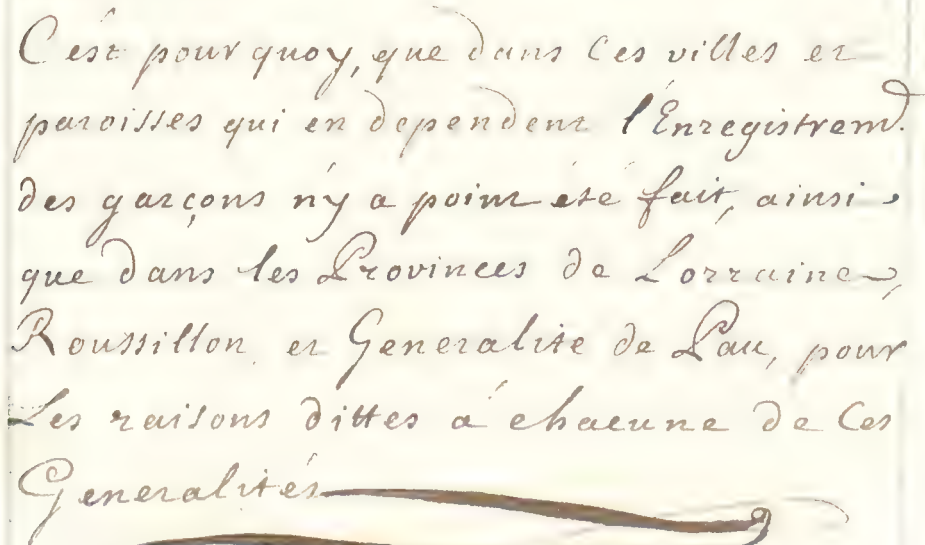 C'est pour quoy, que dans Ces villes et
paroisses qui en dependent l'Enregistremt.
des garçons n'y a point été fait, ainsi
que dans les Provinces de Lorraine,
Roussillon et Generalité de Pau, pour
Les raisons dittes à chacune de Ces
Generalités